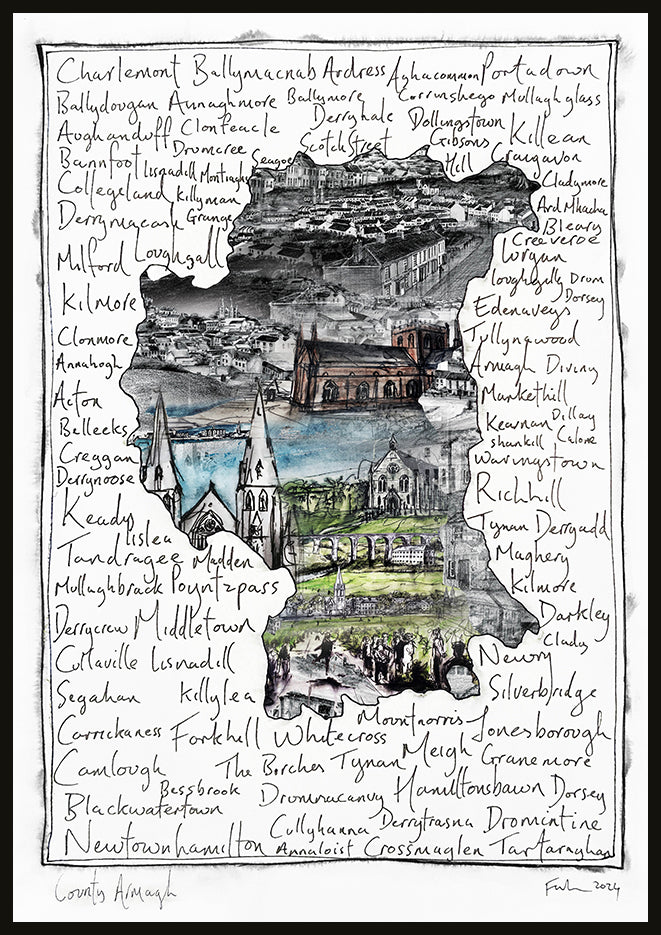 Charlemont Ballymacnab Ardress Aghacommon Portadown
Ballydougan Annaghmore Ballymore Corrunshego Mullaghglass
Aughanduff Clonfeacle Derryhale Dollingstown Killean
Bannfoot Drumcree Scotch Street Gibsons Hill Craigavon
Lisnadill Montiaghs Seagoe
Collegeland Killyman Cladymore
Derrymacash Grange Ard Mhacha
Bleary
Milford Loughgall Creeveroe
Lurgan
Loughgilly Drum
Kilmore Dorsey
Edenaveys
Clonmore Tullynawood
Annahagh Armagh Diviny
Acton Markethill
Belleeks Kearnan Dillay
Shankill Calone
Creggan Waringstown
Derrynoose Richhill
Keady Tynan Derryadd
Lislea
Tandragee Madden Maghery
Mullaghbrack Poyntzpass Kilmore
Derrycrew Middletown Darkley
Clady
Cullaville Lisnadill Newry
Segahan Killylea Silverbridge
Carrickaness Forkhill Whitecross Mountnorris Jonesborough
Camlough The Birches Tynan Meigh Granemore
Bessbrook Drumnacanvy Hamiltonsbawn Dorsey
Blackwatertown
Cullyhanna Derrytrasna Dromintine
Newtownhamilton Annaloist Crossmaglen Tartaraghan
County Armagh
2024